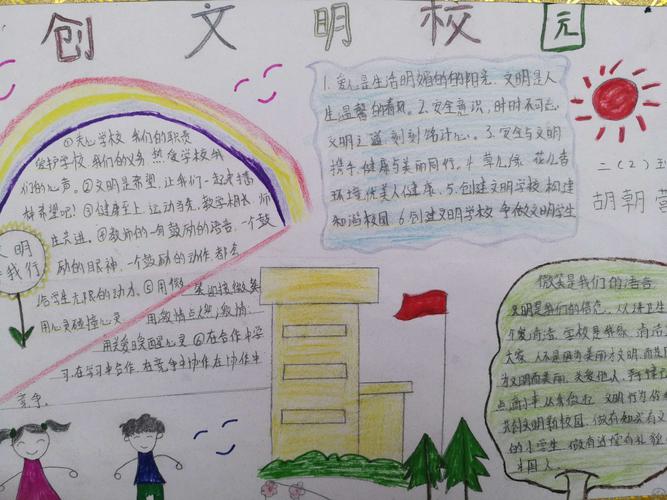 创文明校园
①关心学校 我们的职责
爱护学校 我们的义务 热爱学校我
们的心声。②文明是希望,让我们一起来播
种希望吧!③健康至上,运动当先,教学相长,师
生共进。④教师的一句鼓励的语言,一个鼓
励的眼神,一个鼓励的动作,都会
给学生无限的动力。⑤用微笑迎接微笑
用心灵碰撞心灵 用激情点燃激情
用关爱唤醒心灵 ⑥在合作中学
习,在学习中合作,在竞争中协作在协作中
竞争。
文明
我行
1.爱心是生活明媚的阳光,文明是人
生温馨的春风。2.安全意识,时时不可忘
文明之道,刻刻铭记心。3.安全与文明
携手,健康与美丽同行,4.草儿绿,花儿香
环境优美人健康,5.创建文明学校 构建
和谐校园,6.创建文明学校 争做文明学生
二(2)
胡朝营
微笑是我们的语言
文明是我们的信念,从
学校是我家,清洁
大家,人不是因为美丽才文明,而是因
为文明而美丽,关爱他人,
点滴小事 从我做起 文明 行为
共创文明新校园,做有知识有文
的小学生 做有道德有礼貌
中国人